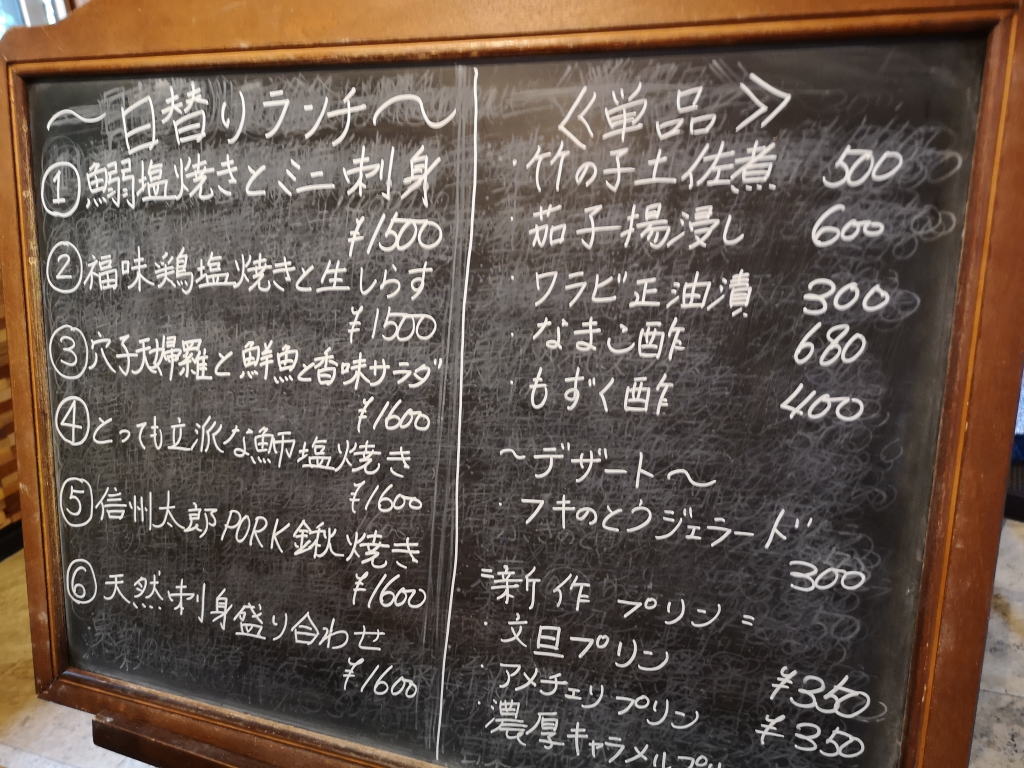 ～日替りランチ～
①鰯塩焼きとミニ刺身
¥1500
②福味鶏塩焼きと生しらす
¥1500
③穴子天婦羅と鮮魚と香味サラダ
¥1600
④とっても立派な鰤塩焼き
¥1600
⑤信州太郎PORK鍬焼き
¥1600
⑥天然刺身盛り合わせ
¥1600
≪単品≫
・竹の子土佐煮 500
・茄子揚浸し 600
・ワラビ正油漬 300
・なまこ酢 680
・もずく酢 400
～デザート～
・フキのとうジェラード
300
=新作プリン=
・文旦プリン
¥350
・アメチェリプリン
¥350
・濃厚キャラメルプリ